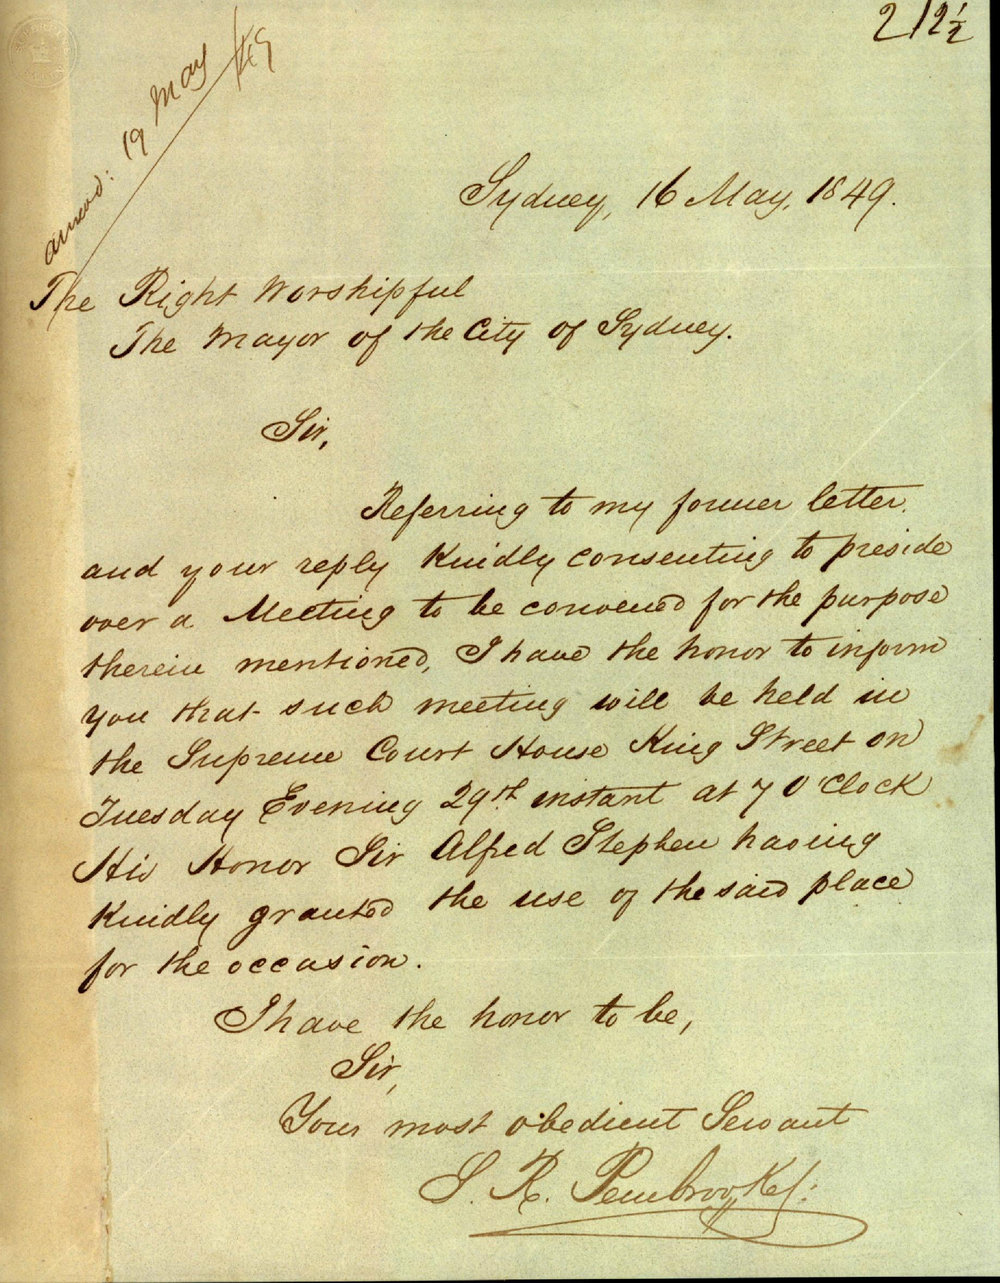 212½
answd: 19 May /49
Sydney, 16 May, 1849.
The Right Worshipful
The Mayor of the City of Sydney.
Sir,
Referring to my former letter,
and your reply Kindly consenting to preside
over a Meeting to be convened for the purpose
therein mentioned, I have the honor to inform
you that such meeting will be held in
the Supreme Court House King Street on
Tuesday Evening 29th instant at 7 O'Clock
His Honor Sir Alfred Stephen having
Kindly granted the use of the said place
for the occasion.
I have the honor to be,
Sir,
Your most obedient Servant
S. R. Pembrooke